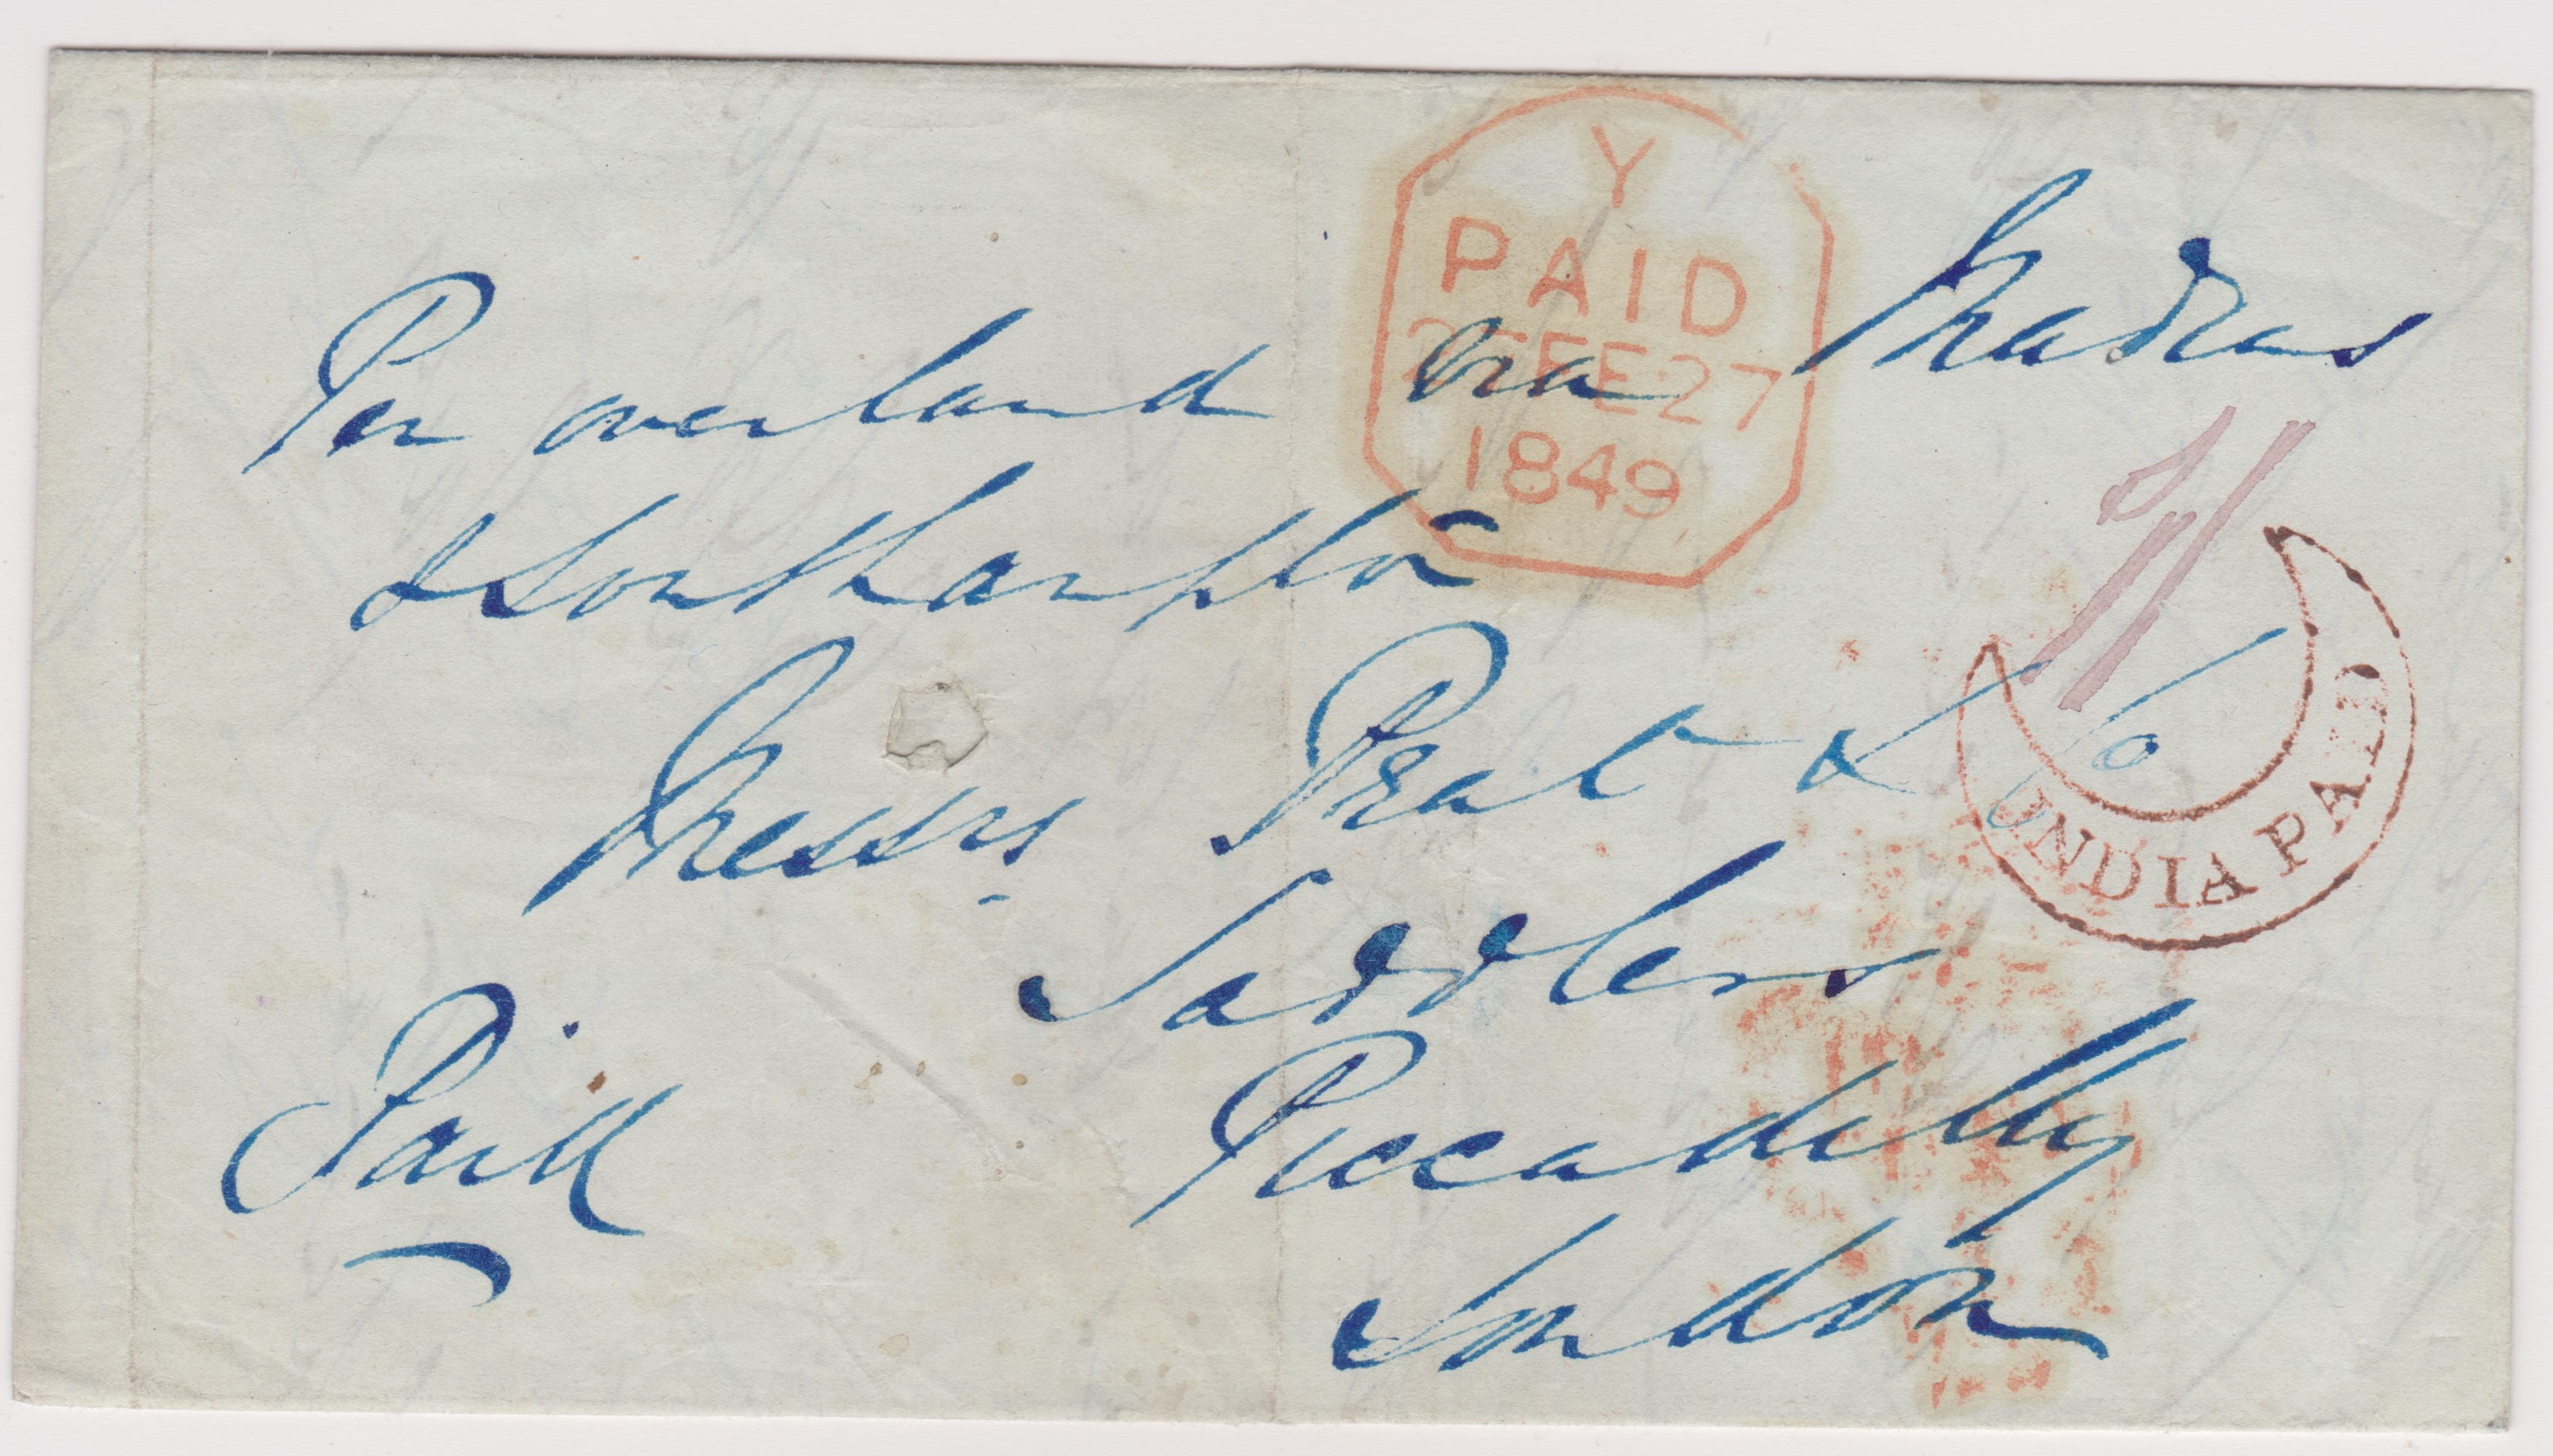 Y
PAID
27 FE 27
1849
Per overland via Madras
& Southampton
Messrs Peat & Co
INDIA PAID
Saddlers
Paid
Piccadilly
London